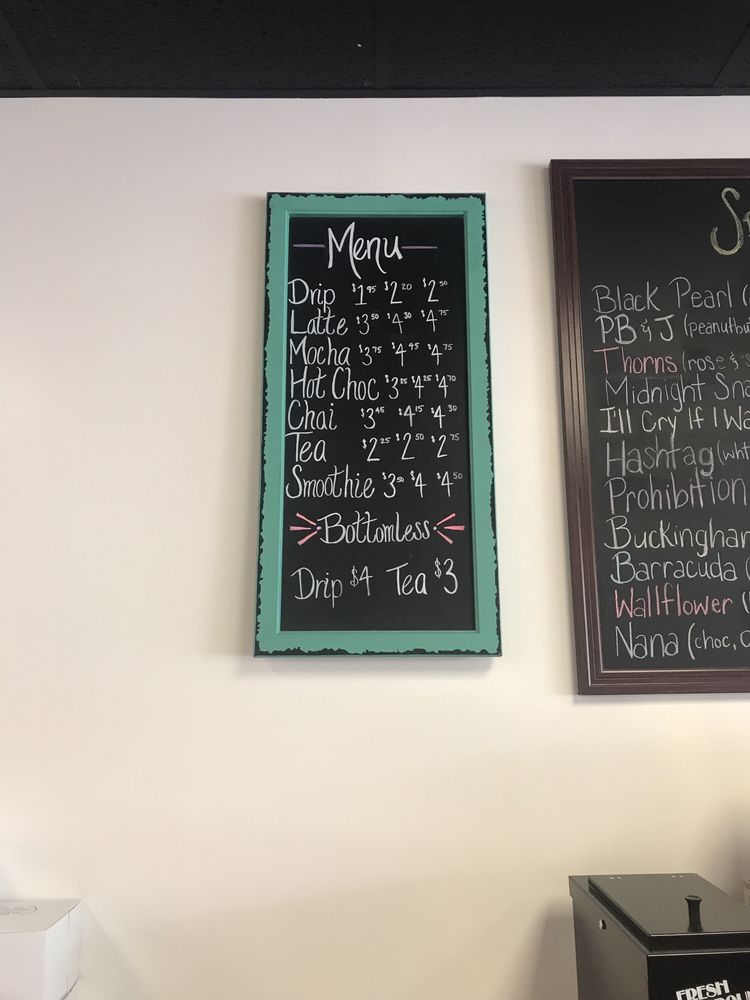 Menu
Drip $1.95 $2.20 $2.50
Latte $3.50 $4.30 $4.75
Mocha $3.75 $4.45 $4.75
Hot Choc $3 $4.25 $4.70
Chai $3.45 $4.15 $4.30
Tea $2.25 $2.50 $2.75
Smoothie $3.50 $4 $4.50
Bottomless
Drip $4 Tea $3
Black Pearl (
PB & J (peanutbu
Thorns (rose &
Midnight Sna
I'll Cry If I Wa
Hashtag (wht
Prohibition
Buckingham
Barracuda (
Wallflower (
Nana (choc, c
FRESH